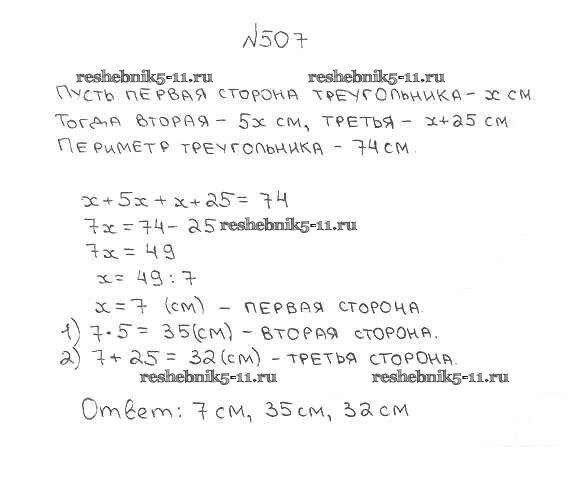 №507
reshebnik5-11.ru reshebnik5-11.ru
Пусть первая сторона треугольника - x см.
Тогда вторая - 5x см, третья - x+25 см
Периметр треугольника - 74 см.
x + 5x + x + 25 = 74
7x = 74 - 25 reshebnik5-11.ru
7x = 49
x = 49 : 7
x = 7 (см) - первая сторона.
1) 7 · 5 = 35 (см) - вторая сторона.
2) 7 + 25 = 32 (см) - третья сторона.
reshebnik5-11.ru reshebnik5-11.ru
Ответ: 7 см, 35 см, 32 см